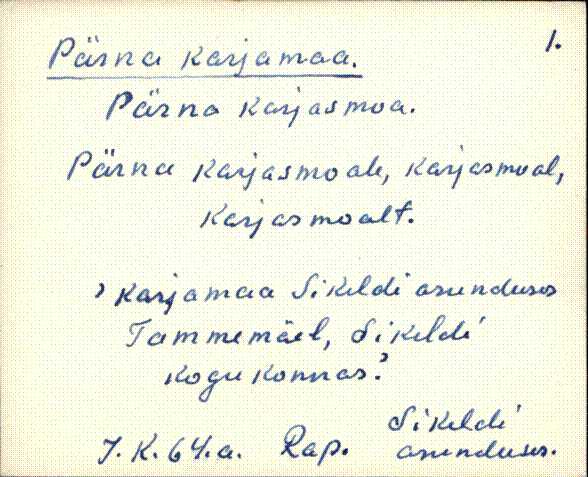 1.
Pärna karjamaa.
Pärna karjasmoa.
Pärna karjasmoale, karjasmoal,
karjasmoalt.
› karjamaa Sikeldi asunduses
Tammemäel, Sikeldi
kogukonnas.›
J.K. 64.a. Rap. Sikeldi
asunduses.